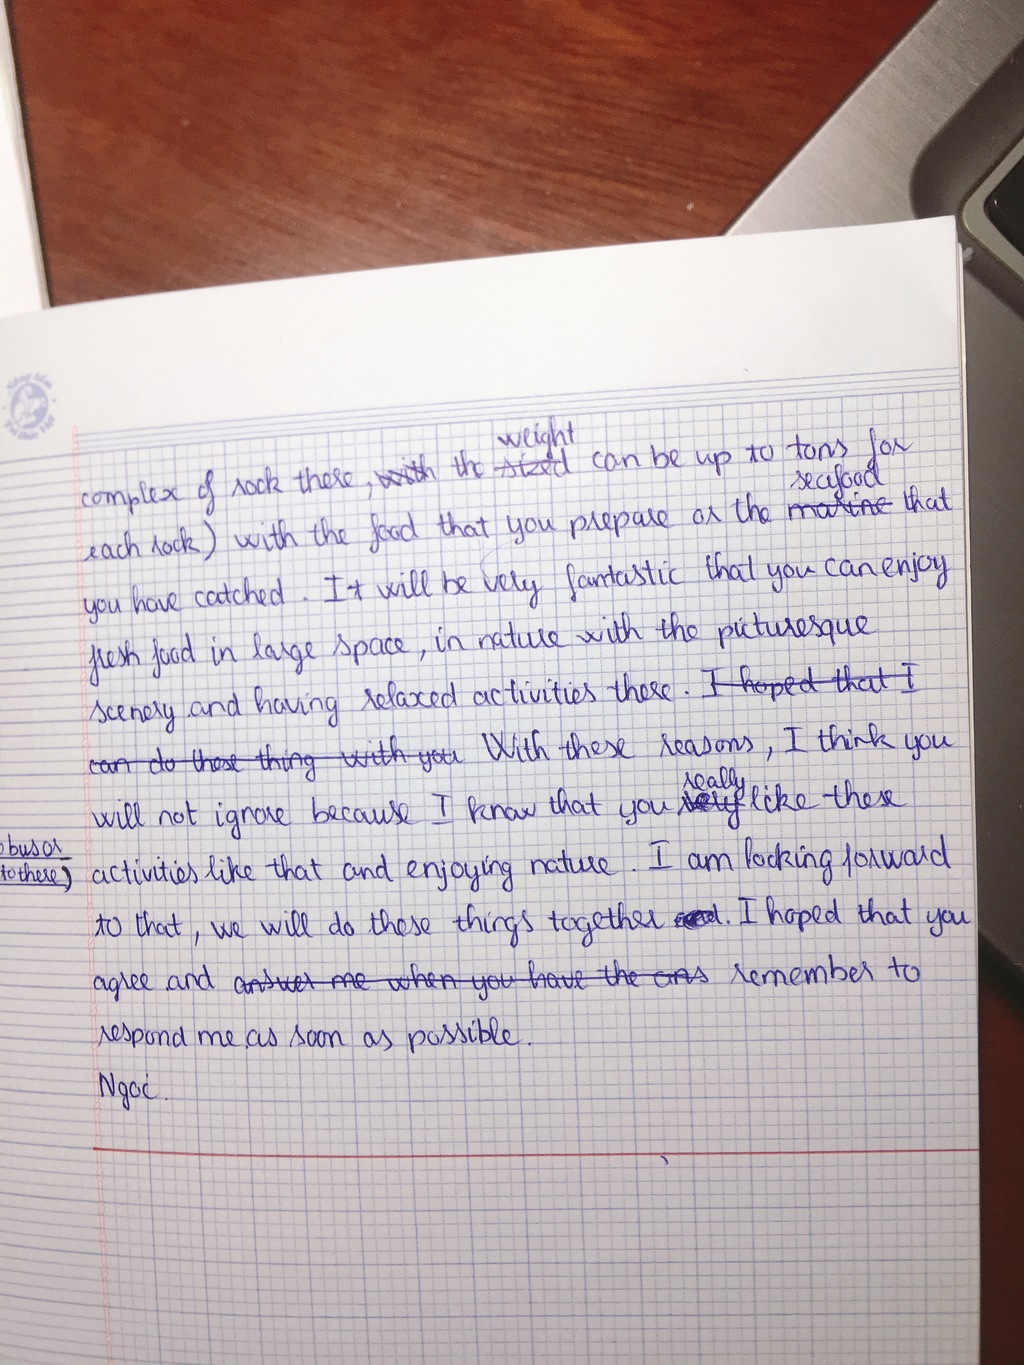 weight
complex of rock there, with the sized can be up to tons for
seafood
each rock) with the food that you prepare or the marine that
you have catched. It will be very fantastic that you can enjoy
fresh food in large space, in nature with the picturesque
scenery and having relaxed activities there. I hoped that I
can do these thing with you With these reasons, I think you
really
will not ignore because I know that you very like these
bus or
to there) activities like that and enjoying nature. I am looking forward
to that, we will do these things together and. I hoped that you
agree and answer me when you have the ans remember to
respond me as soon as possible.
Ngọc.